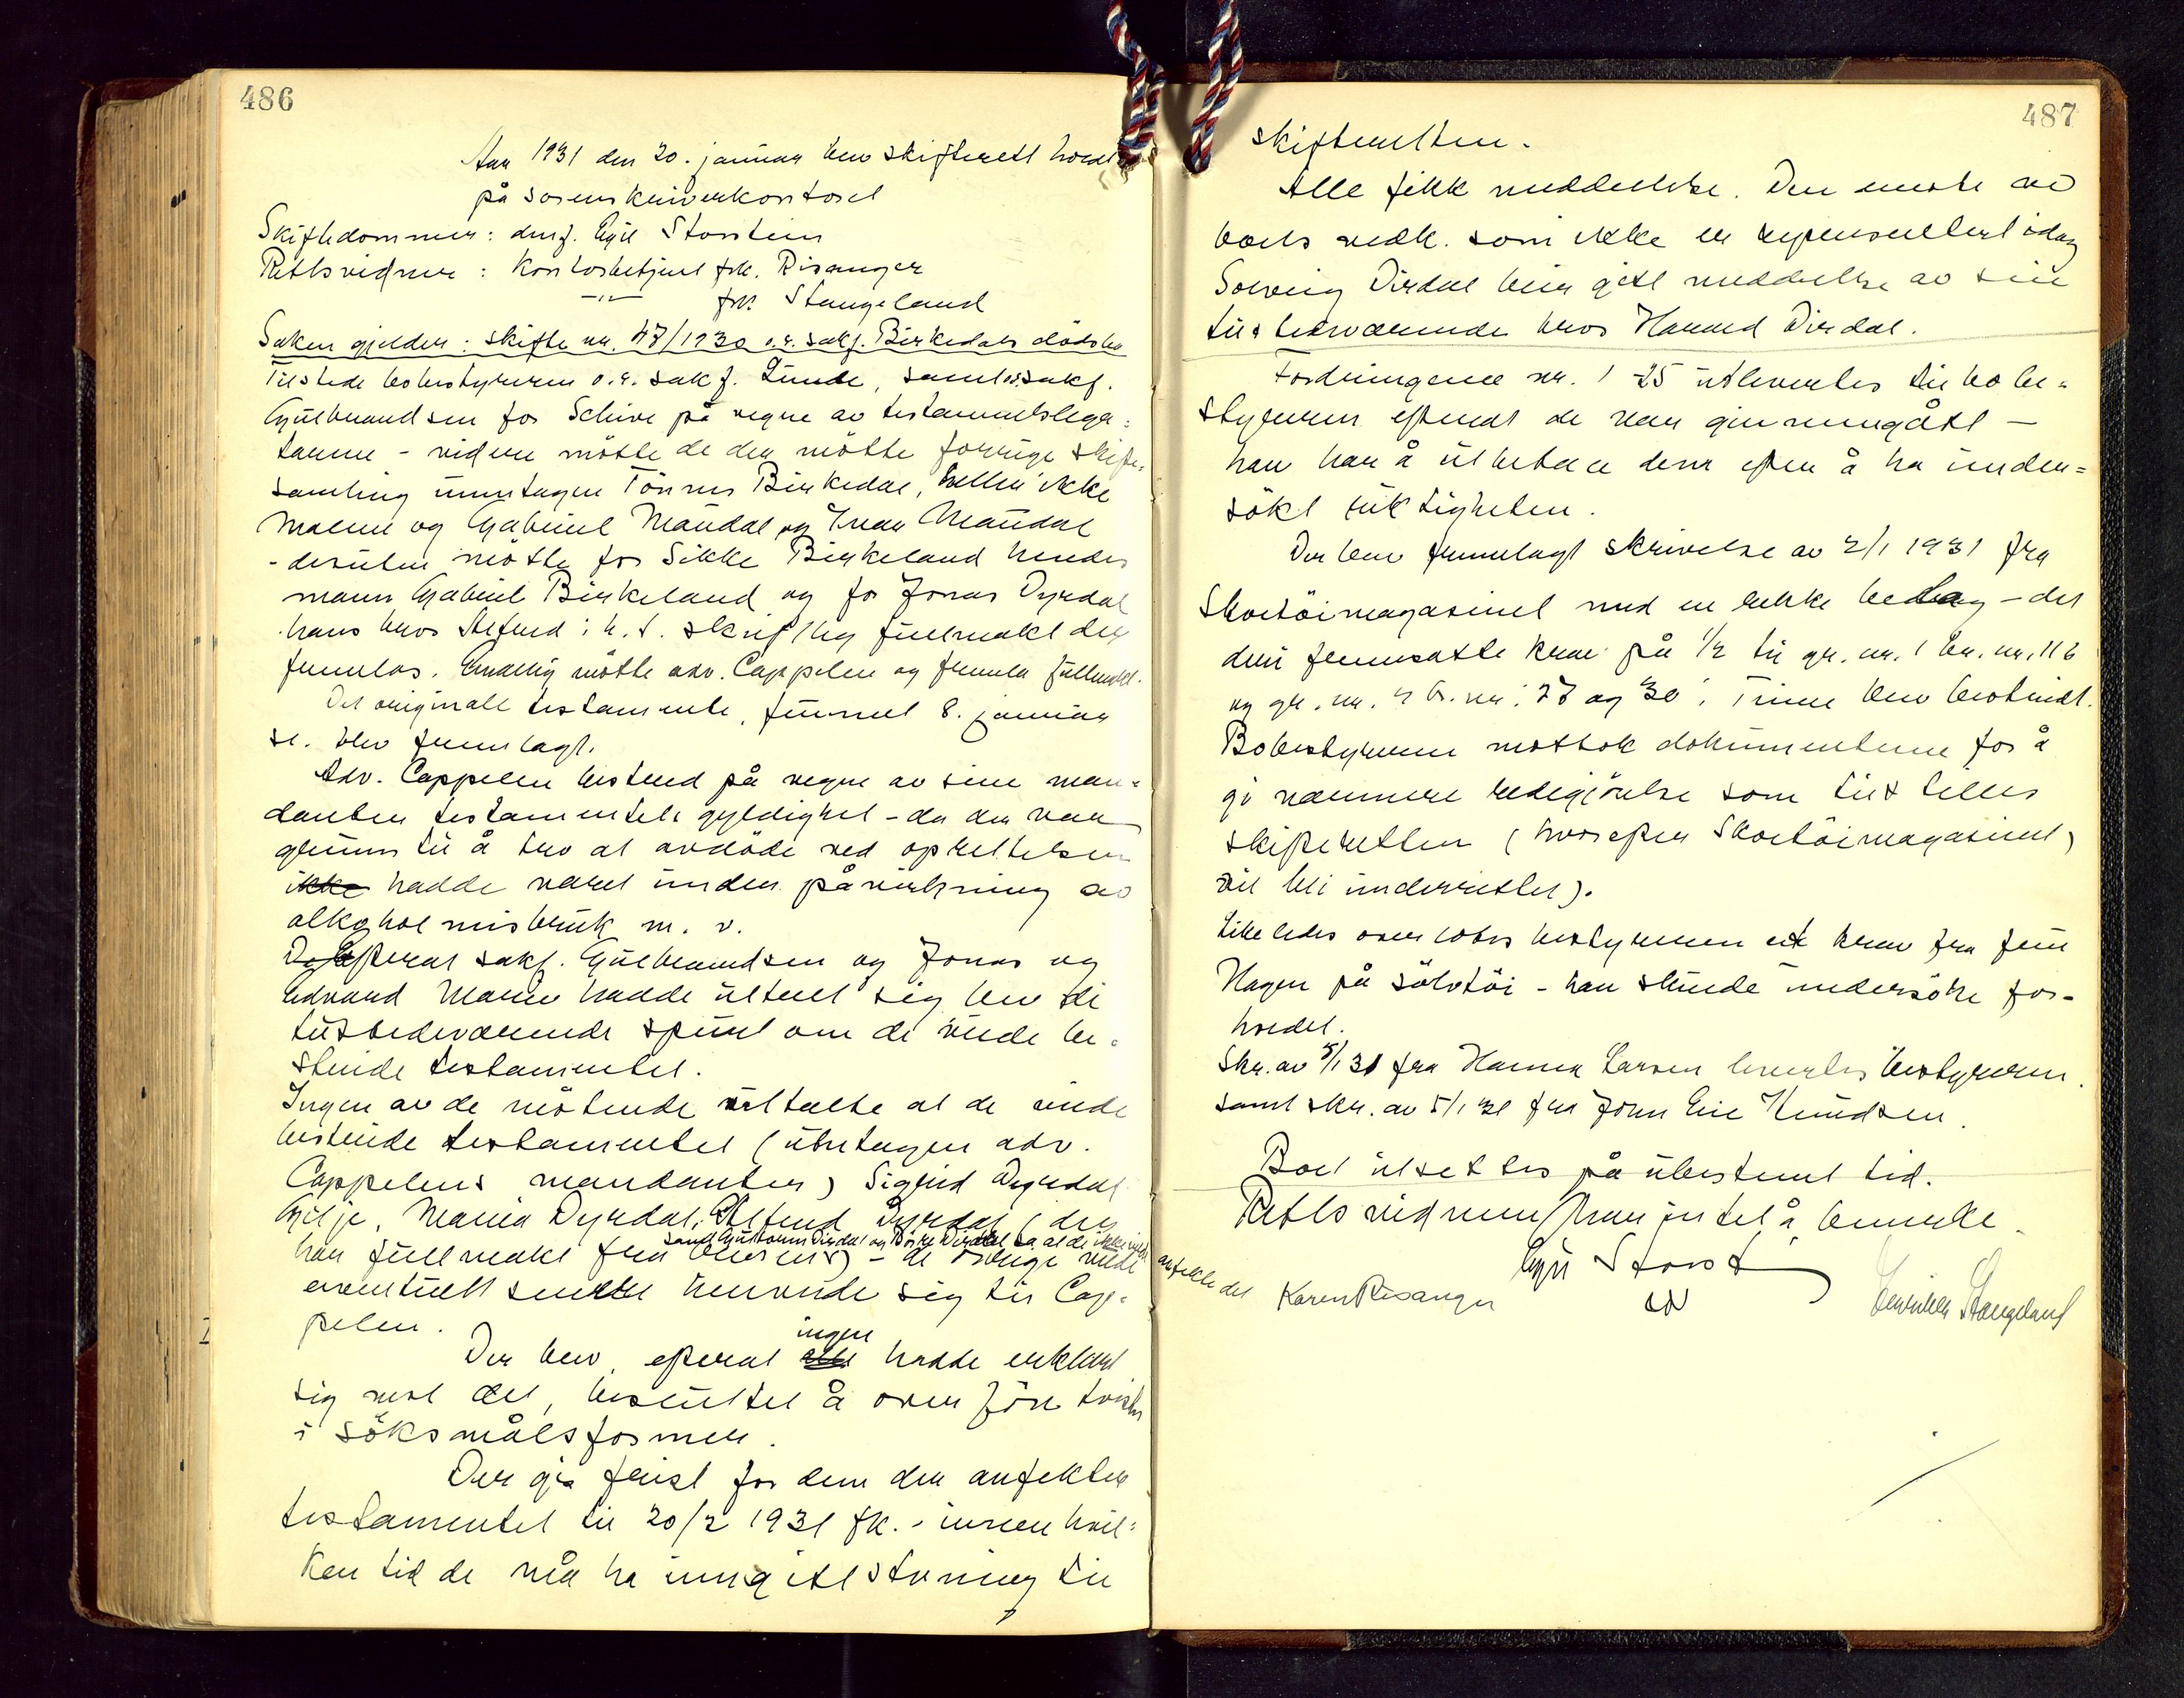 486
Aar 1931 den 20. januar blev skifterett holdt
på sorenskriverkontoret
Skiftedommer: dmf. Egil Storstein
Rettsvidner: Kontorbetjent frk. Risanger
—"— frk Stangeland
Saken gjelder: skifte nr. 47/1930 o.r. sakf. Birkedals dødsbo
Tilstede bobestyreren o.r. sakf. Lunde, samt o.r. sakf.
Gulbrandsen for Schive på vegne av testamentslega=
tarene - videre møtte de der møtte forrige skifte=
samling unntagen Tönnes Birkedal, heller ikke
Malene og Gabriel Maudal og Ivar Maudal
- desuten møtte for Sikke Birkeland hendes
mann Gabriel Birkeland og for Jonas Dyrdal
hans bror Alefend i h. t. skriftlig fullmakt der
fremlas. Endelig møtte adv. Cappelen og fremla fullmakt.
Det originale testamente, funnet 8. januar
sl. blev fremlagt.
Adv. Cappelen bestred på vegne av sine man=
danter testamentets gyldighet - da der var
grunn til å tro at avdøde ved oprettelsen
ikke hadde været under påvirkning av
alkohol misbruk m. v.
Efterat sakf. Gulbrandsen og Jonas og
Edvard Maure hadde uttalt sig blev de
tilstedeværende spurt om de vilde be=
stride testamentet.
Ingen av de møtende uttalte at de vilde
bestride testamentet (undtagen adv.
Cappelens mandanter) Sigrid Dyrdal
Gilje, Maria Dyrdal, Alefend Dyrdal (der
samt Guttorm Dirdal og Børre Dirdal sa at de ikke vilde anfekte det
har fullmakt fra broren) - de øvrige vilde
eventuelt senere henvende sig til Cap=
pelen.
ingen
Der blev, efterat alle hadde erklært
sig mot det, besluttet å overføre tvisten
i søksmålsformen.
Der gis frist for dem der anfekter
testamentet til 20/2 1931 fk. - innen hvil=
ken tid de må ha inngitt stevning til
487
skifteretten.
Alle fikk meddelelse. Den eneste av
boets vedk. som ikke er representert idag
Solveig Dirdal blir gitt meddelelse av sin
tilstedeværende bror Harald Dirdal.
Fordringene nr. 1-25 utlevertes til bobe=
styreren efterat de var gjennemgått —
han har å utbetale dem efter å ha under=
søkt riktigheten.
Der blev fremlagt skrivelse av 2/1 1931 fra
Skotøimagasinet med en rekke bedlag - det
deri fremsatte krav på 1/2 til gr. nr. 1 br. nr. 116
og gr. nr. 4 br. nr. 27 og 30. Trine blev bestridt.
Bobestyreren mottok dokumentene for å
gi nærmere redegjørelse som tilstilles
skifteretten (hvorefter Skotøimagasinet
vil bli underrettet).
Likeledes overlotes bestyreren et krav fra frue
Hagen på sølvtøi - han skulde undersøke for=
holdet.
Skr. av 5/1 31 fra Hanna Larsen levertes bestyreren.
samt skr. av 5/1 31 fra John Eie Knudsen.
Boet utsettes på ubestemt tid.
Rettsvidnene har intet å bemerke.
Egil Storst
Karen Risanger
Stangeland